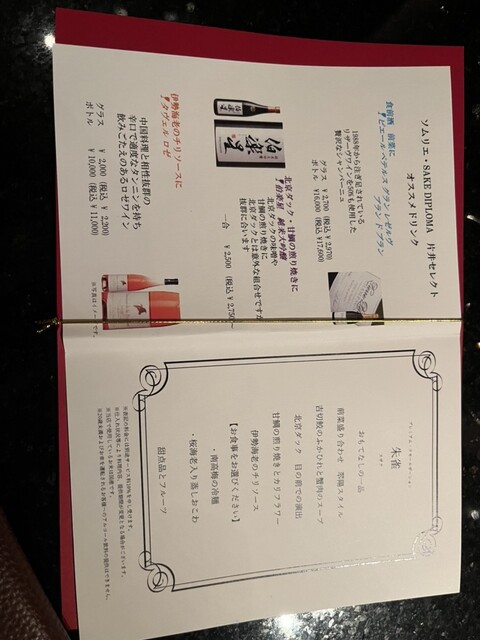 ソムリエ・SAKE DIPLOMA 片井セレクト
オススメドリンク
食前酒 前菜に
ピエール・ペテルス グラン レゼルヴ
ブラン ド ブラン
1988年から注ぎ足されている
リザーヴワインを50%も使用した
贅沢なシャンパーニュ
グラス ¥ 2,700 (税込 ¥ 2,970)
ボトル ¥16,000 (税込 ¥ 17,600)
北京ダック・甘鯛の煎り焼きに
伯楽星 純米大吟醸
北京ダックの味噌や
甘鯛の煎り焼きに
北京ダックとは意外な組合せですが
抜群に合います
一合 ¥ 2,500 (税込 ¥ 2,750)
伯楽星
伊勢海老のチリソースに
タヴェル ロゼ
中国料理と相性抜群の
辛口で適度なタンニンを持ち
飲みごたえのあるロゼワイン
グラス ¥ 2,000 (税込 ¥ 2,200)
ボトル ¥ 10,000 (税込 ¥ 11,000)
※写真はイメージです。
朱雀
おもてなしの一品
前菜盛り合わせ
吉切鮫のふかひれと蟹肉のスープ
北京ダック 目の前での演出
甘鯛の煎り焼きとカリフラワー
伊勢海老のチリソース
【お食事をお選びください】
・南高梅の冷麺
・桜海老入り蒸しおこわ
甜点品とフルーツ